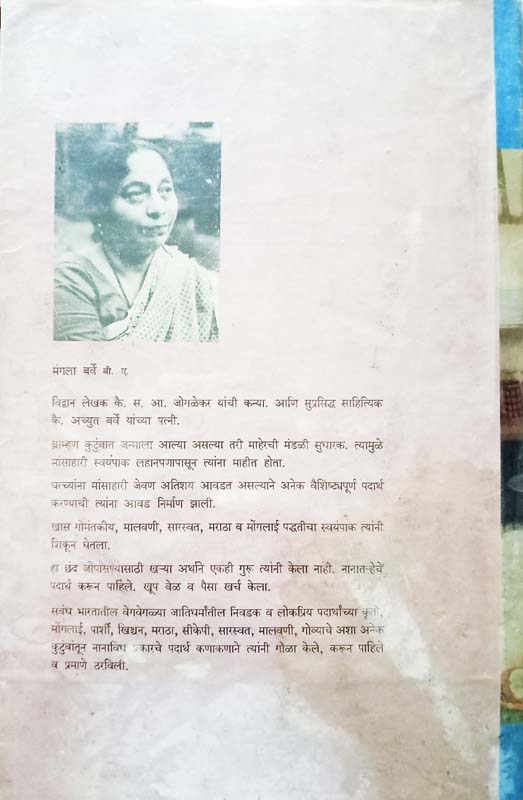 मंगला बर्वे बी. ए.
विद्वान लेखक कै. स. आ. जोगळेकर यांची कन्या. आणि सुप्रसिद्ध साहित्यिक
कै. अच्युत बर्वे यांच्या पत्नी.
ब्राम्हण कुटुंबात जन्माला आल्या असल्या तरी माहेरची मंडळी सुधारक. त्यामुळे
मांसाहारी स्वयंपाक लहानपणापासून त्यांना माहीत होता.
घरच्यांना मांसाहारी जेवण अतिशय आवडत असल्याने अनेक वैशिष्ट्यपूर्ण पदार्थ
करण्याची त्यांना आवड निर्माण झाली.
खास गोमंतकीय, मालवणी, सारस्वत, मराठा व मोंगलाई पद्धतीचा स्वयंपाक त्यांनी
शिकून घेतला.
हा छंद जोपासण्यासाठी खऱ्या अर्थाने एकही गुरू त्यांनी केला नाही. नानातऱ्हेचे
पदार्थ करून पाहिले. खूप वेळ व पैसा खर्च केला.
सबंध भारतातील वेगवेगळ्या जातिधर्मांतील निवडक व लोकप्रिय पदार्थांच्या कृती,
मोंगलाई, पार्शी, ख्रिश्चन, मराठा, सीकेपी, सारस्वत, मालवणी, गोव्याचे अशा अनेक
कुटुंबांतून नानाविध प्रकारचे पदार्थ कणाकणाने त्यांनी गोळा केले, करून पाहिले
व प्रमाणे ठरविली.